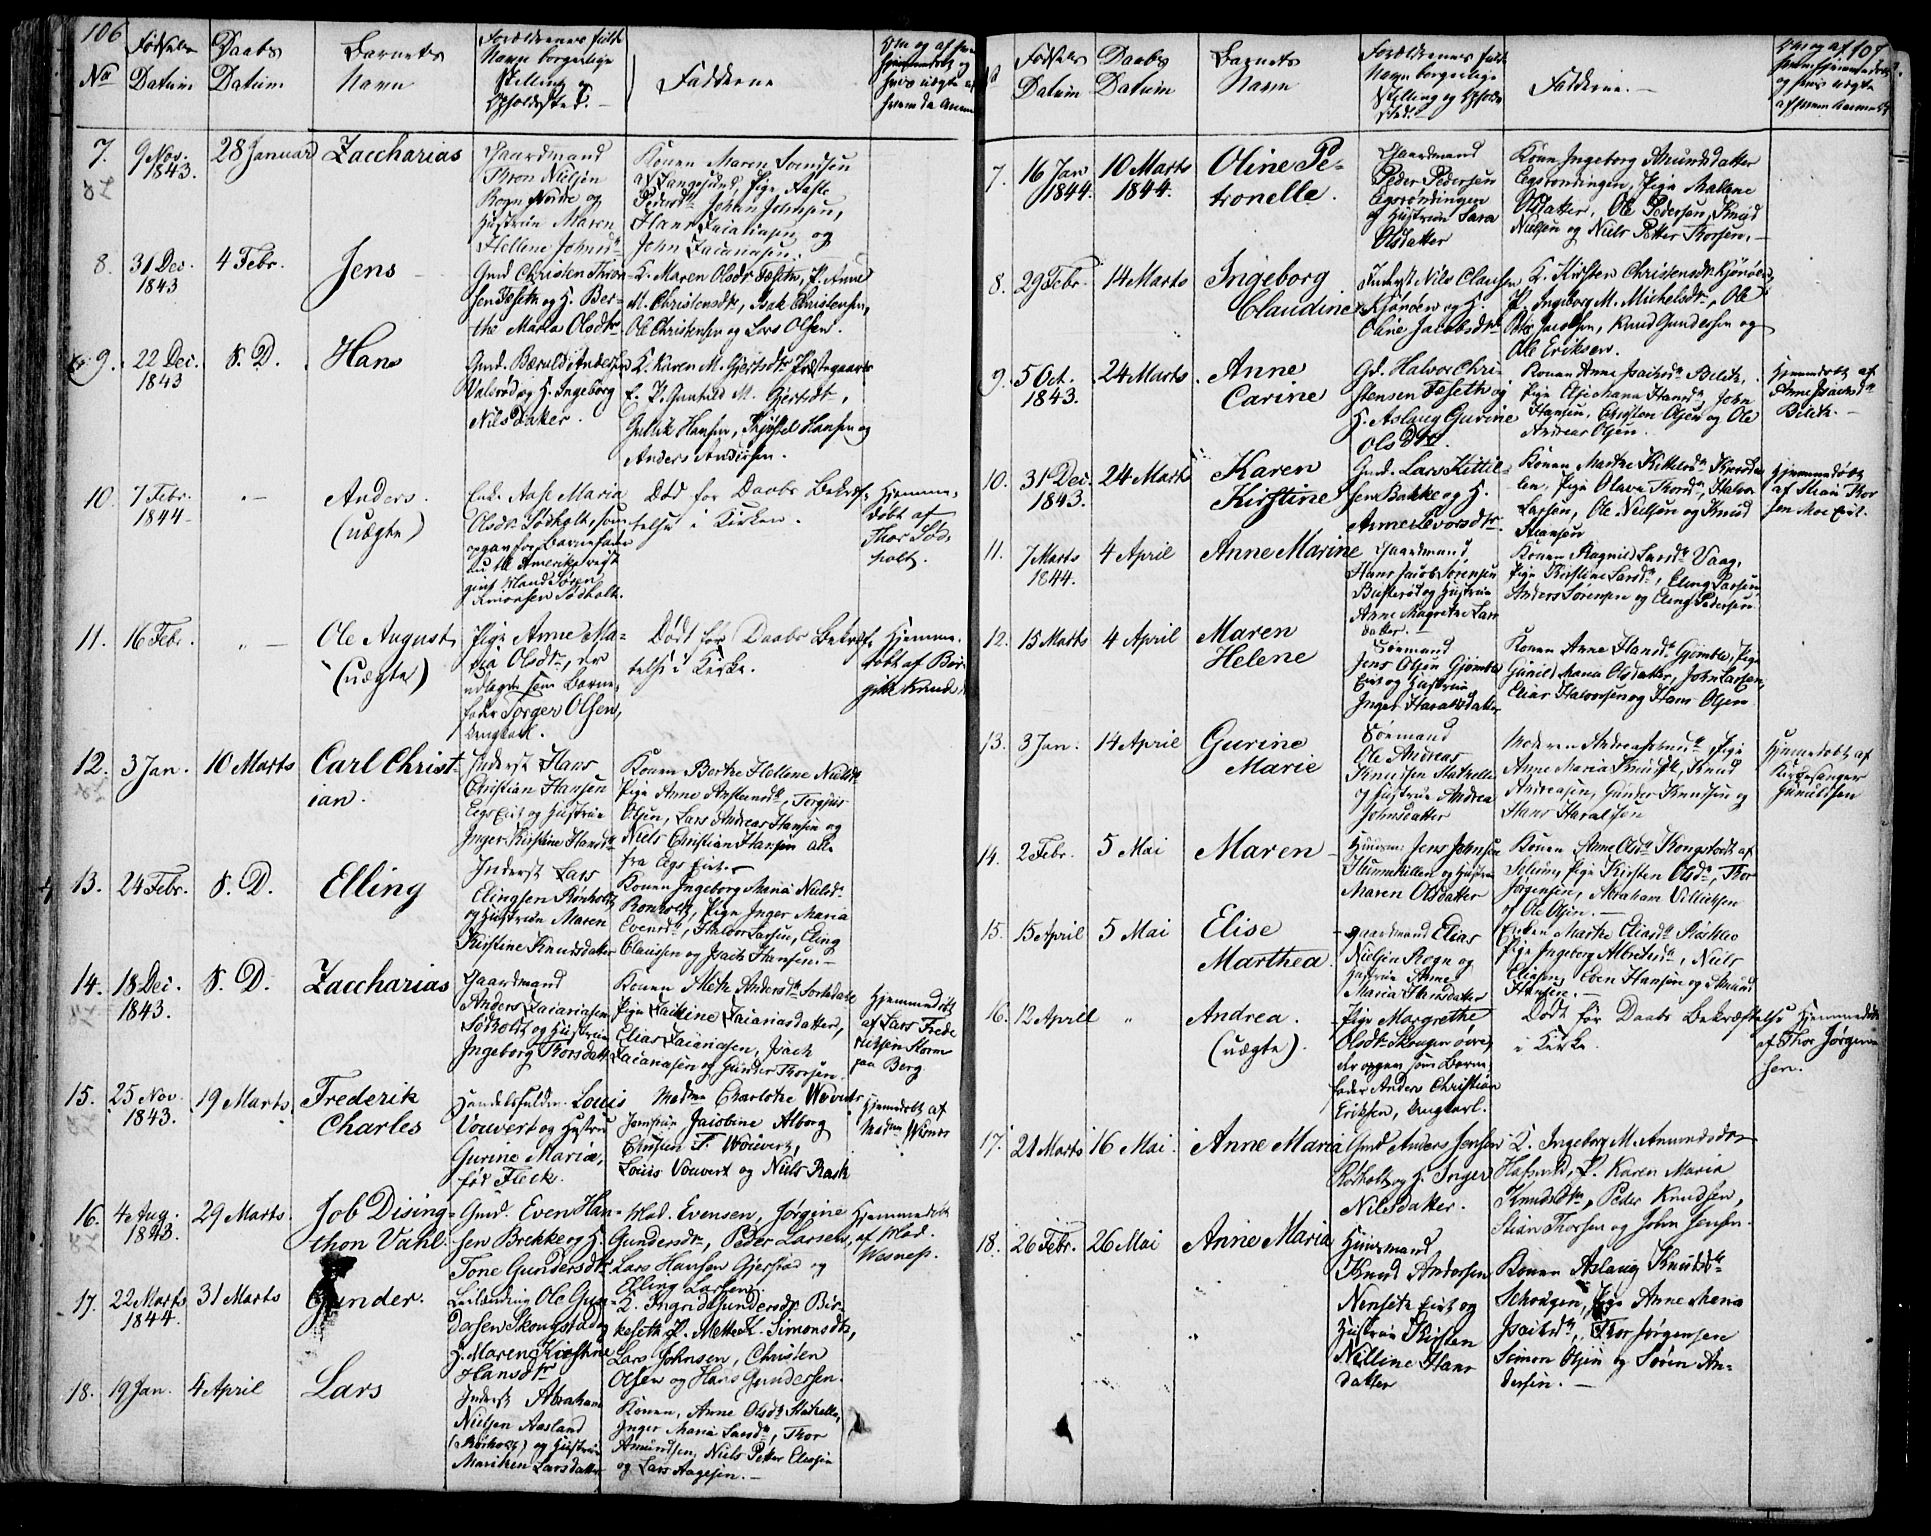 106
No
Fødsels
Datum
Daabs
Datum
Barnets
Navn
Forældrenes fulde
Navn borgerlige
Stilling og
Opholdssted.
Fadderne
7. 9 Nov. 1843. 28 Januar Zaccharias
Gaardmand
Thron Nielsen
Rogn Nedre og
Hustrue Maren
Hellene Johnsdr
Konen Maren Svendsen
af Langesund, Pige Aase
Pedersdr Johan Johnsen,
Hans Zaiariasen og
John Zaiariasen.
8. 31 Dec. 1843 4 Febr. Jens
Gmd Christen Thron
sen Tveten og H. Ber-
the Maria Olsdr
K. Maren Olsdr Tveten, P. Anne
M. Christensdr, Isak Christensen,
Ole Christensen og Lars Olsen.
9. 22 Dec. 1843 S. D. Hans
Gmd. Bærulf Andersen
Valerød og H. Ingeborg
Nilsdatter.
K. Karen M. Gjertsdr Præstegaard
E. P. Gunhild M. Gjertsdr,
Gullik Hansen, Kjøstel Hansen og
Anders Andersen.
10. 7 Febr. 1844 Anders.
(uægte)
Enke Aase Maria
Olsdr Sødholt, som
opgav for Barnefader
en til Amerika reist
givt Mand Søren
Simonsen Sødholt.
Død før Daabs Bekræf-
telse i Kirken.
Hjemme-
døbt af
Thor Sød-
holt.
11. 16 Febr. Ole August
(uægte)
Pige Anne Ma-
ria Olsdr, der
udlagde som Barne-
fader Torger Olsen,
Ungkarl.
Dødt før Daabs Bekræf-
telse i Kirke.
Hjemme-
døbt af Bir-
gitte Knuds
12. 3 Jan. 10 Marts Carl Christ-
ian.
Inderst Hans
Christian Hansen
Eegs Eiet og Hustrue
Inger Kirstine Hansdr
Konen Berthe Hellene Nielsdr
Pige Anne Anstensdr, Torgius
Olsen, Lars Andreas Hansen og
Niels Christian Hansen alle
fra Eegs Eiet.
13. 24 Febr. S. D. Elling
Inderst Lars
Elingsen Rønholt
og Hustrue Maren
Kirstine Knudsdatter
Konen Ingeborg Maria Nielsdr
Ronholt, Pige Inger Maria
Evensdr, Halvor Larsen, Eling
Clausen og Isach Hansen.
14. 18 Dec. 1843. S. D. Zaccharias
Gaardmand
Anders Zaiariasen
Sødholt og Hustrue
Ingeborg Thorsdatt
Konen Mette Andersdr Torkedal
Pige Zachine Zaiariasdatter,
Elias Zaiariasen, Isach
Zaiariasen og Gunder Thorsen.
Hjemmedøbt
af Lars Frede
riksen Storm
paa Berg
15. 25 Nov. 1843. 19 Marts Frederik
Charles
Handelsfuldm. Louis
Vouvert og Hustrue
Gurine Maria,
fød Fleck.
Madm Charlotte Wouvert
Jomfrue Jacobine Alborg
Christen F. Wouvert,
Louis Vouvert og Niels Rask
Hjemdøbt af
Madm Wesnes
16. 4 Aug. 1843. 29 Marts. Job Dising-
thon Vahl.
Gmd. Even Han-
sen Brekke og H.
Tone Gundersdtr
Mad. Evensen, Jørgine
Gundersdr, Peder Larsen,
Lars Hansen Gjersrød og
Elling Larsen.
Hjemmedøbt
af Mad.
Wesnes.
17. 22 Marts 1844. 31 Marts Gunder.
Leilænding Ole Gun-
dersen Skougstad og
H. Maren Kirstine
Hansdtr
K. Ingrid Gundersdr Bir-
keseth P. Mette K. Simonsdtr,
Lars Johnsen, Christen
Olsen og Hans Gundersen.
18. 19 Jan. 4 April Lars
Inderst Abraham
Nielsen Aasland
(Rørholt) og Hustrue
Mariken Larsdatter
Konen, Anne Olsdr Stathelle,
Inger Maria Larsdr, Thor
Amundsen, Niels Petter Eliesen
og Lars Aagesen.
107
Fødsels
Datum
Daabs
Datum
Barnets
Navn
Forældrenes fulde
Navn borgerlige
Stilling og Opholds
sted.
Fadderne.
7. 16 Jan 1844. 10 Marts 1844. Oline Pe-
tronelle.
Gaardmand
Peder Pedersen
Eegsrøndingen
og Hustrue Sara
Olsdatter
Kone Ingeborg Amundsdatter
Eegsrøndingen, Pige Malene
Olsdatter, Ole Pedersen, Knud
Nielsen og Niels Petter Thorsen.
8. 29 Febr. 14 Marts Ingeborg
Claudine
Inderst Nils Clausen
Kjønøen og H.
Oline Jacobsdr
K. Kirsten Christensdr Kjønøen,
P. Ingeborg M. Michelsdr, Ole
Peter Jacobsen, Knud Gundersen og
Ole Eriksen.
9. 5 Oct. 1843. 24 Marts. Anne
Carine
Gd. Halvor Chri-
stensen Tveten og
H. Aslaug Gurine
Olsdtr.
Konen Anne Isaksdr Blekk,
Pige Else Maria Hansdr, John
Hansen, Christen Olsen og Ole
Andreas Olsen.
Hjemmdøbt af
Anne Isachsdr
Blekk.
10. 31 Dec. 1843. 24 Marts Karen
Kirstine
Gmd. Lars Kittil-
sen Bakke og H.
Anne Levorsdtr
Konen Marthe Kittelsdr
Pige Olava Thordr, Halvor
Larsen, Ole Nielsen og Knud
Steensen
Hjemmedøbt
af Stian Thor
sen Moe Eiet.
11. 7 Marts 1844. 4 April Anne Marine
Gaardmand
Hans Jacob Sørensen
Busterød og Hustrue
Anne Magrethe Lars
datter.
Konen Ragnild Larsdr Vaag,
Pige Kirstine Larsdr, Eling Larsen,
Anders Sørensen og Eling Pedersen
12. 15 Marts 4 April Maren
Helene
Sømand
Jens Olsen Gjømle
Eiet og Hustrue
Inger Haralsdatter
Konen Anne Hansdr Gjømle, Pige
Gunild Maria Olsdatter, John Larsen,
Elias Halvorsen og Hans Olsen
13. 3 Jan. 14 April Gurine
Marie
Sømand
Ole Andreas
Knudsen Stathelle
og Hustrue Andrea
Johnsdatter
Moderen Andrea Johnsdr, Pige
Anne Maria Knudsdr, Knud
Andreasen, Gunder Knudsen og
Hans Haralsen
Hjemmedøbt af
Kirkesanger
Gunildsen
14. 2 Febr. 5 Mai Maren
Huusm: Jens Johnsen
Hummekillen og Hustrue
Maren Olsdatter
Konen Anne Olsdr Kongstedt af
Pige Kirsten Olsdr, Thor
Jørgensen, Abraham Villiumsen
og Ole Olsen.
15. 15 April 5 Mai Elise
Marthea.
Gaardmand Elias
Nielsen Rogn og
Hustrue Anne
Maria Hansdatter
Enken Marthe Eliasdr Stokke
Pige Ingeborg Albretsdr, Niels
Eliesen, Even Hansen og Amund
Hansen.
16. 12 April " Andrea.
(uægte).
Pige Margrethe
Olsdr Skougen øvre,
der opgav som Barne-
fader Anders Christian
Eriksen, Ungkarl.
Dødt før Daabs Bekræftelse
i Kirke.
Hjemmedøbt
af Thor Jørgen-
sen.
17. 21 Marts 16 Mai Anne Maria
Gmd Anders Jensen
Rørholt og H. Inger
Nilsdatter.
K. Ingeborg M. Amundsdr
Hafsund, P. Karen Maria
Knudsdr, Peder Knudsen,
Stian Thorsen og John Jensen.
18. 26 Febr. 26 Mai Anne Maria
Huusmand
Knud Andersen
Nenseth Eiet og
Hustrue Kirsten
Nilline Hans
datter
Konen Aslaug Knudsdr
Schougen, Pige Anne Maria
Isaksdr, Thor Jørgensen
Simon Olsen og Søren An-
dersen.